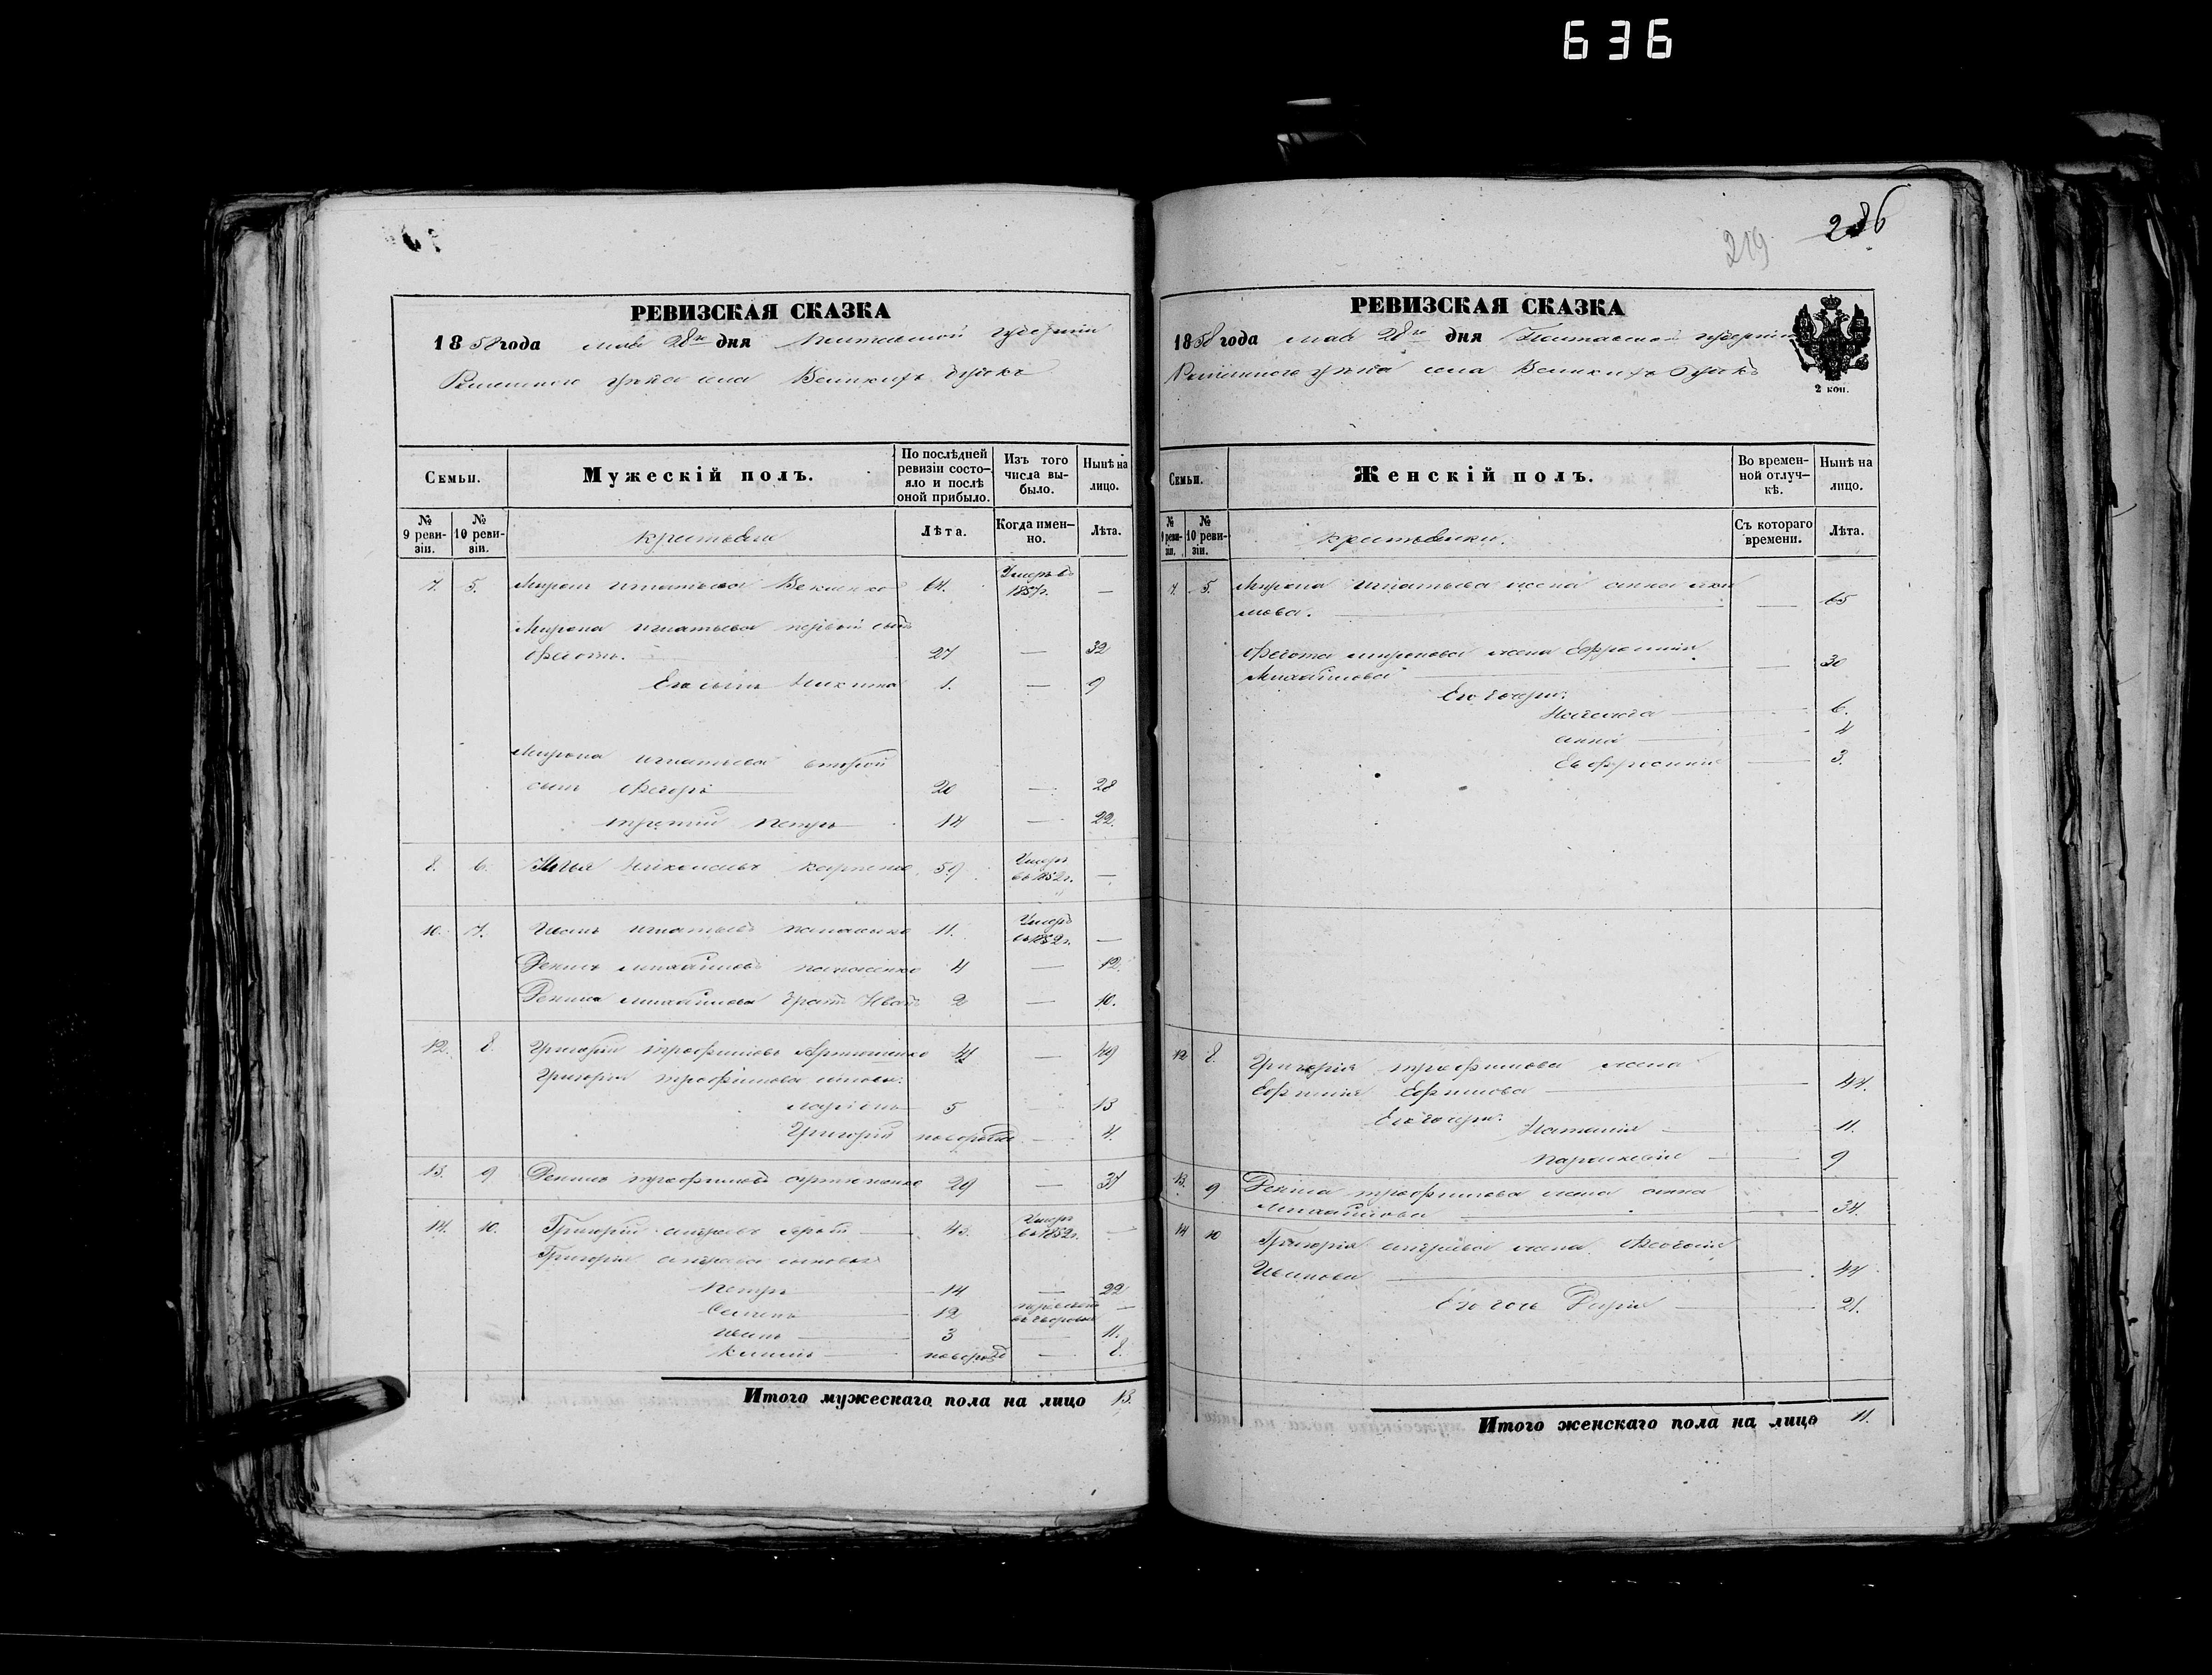 636
286
219
РЕВИЗСКАЯ СКАЗКА
1858 года мая 28го дня Полтавской губернии
Роменского уѣзда села Великихъ Бубновъ
Семьи.
Мужескій полъ.
По послѣдней ревизіи состояло и послѣ оной прибыло.
Изъ того числа выбыло.
Нынѣ на лицо.
№ 9 ревизіи.
№ 10 ревизіи.
крестьяне
Лѣта.
Когда именно.
Лѣта.
7. 5. Миронъ Игнатьевъ 64. Умеръ въ 1857г. —
Мирона Игнатьева первый сынъ
Федотъ. 27 — 32
Его сынъ Никита 1. — 9
Мирона Игнатьева второй
сынъ Федоръ 20 — 28
третій Петръ 14 — 22.
8. 6. Илья Карпенко 59 Умеръ въ 1852г. —
10. 7. Иванъ Игнатьевъ 11. Умеръ въ 1852г. —
Денисъ Михайловъ 4 — 12.
Дениса Михайлова братъ Иванъ 2 — 10.
12. 8. Григорій Трофимовъ Артюшенко 41 — 49
Григорія Трофимова сыновья:
Ларіонъ 5 — 13
Григорій новорожд — 4.
13. 9 Денисъ Трофимовъ Артюшенко 29 — 37
14. 10. Григорій Андреевъ 43. Умеръ въ 1852г. —
Григорія Андреева сыновья
Петръ 14 — 22
Семенъ 12 —
Иванъ 3 — 11.
новорожд — 8.
Итого мужескаго пола на лицо 13.
РЕВИЗСКАЯ СКАЗКА
1858 года мая 28го дня Полтавской губерніи
Роменского уѣзда села Великихъ Бубновъ
2 коп.
Семьи.
Женскій полъ.
Во временной отлучкѣ.
Нынѣ на лицо.
№ 9 ревизіи.
№ 10 ревизіи.
крестьянки.
Съ котораго времени.
Лѣта.
7. 5. Мирона Игнатьева жена Анна
— 65
Федота Миронова жена Ефросинія
Михайлова — 30
Его дочери:
6.
Анна 4
Евфросинія 3.
12 8. Григорія Трофимова жена
Ефимова — 44.
Его дочери: Наталія 11.
Параскевія 9
13. 9 Дениса Трофимова жена Анна
Михайлова 34.
14 10 Григорія Андреева жена
Иванова 44
Его дочь Дарія 21.
Итого женскаго пола на лицо 11.